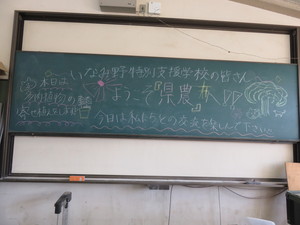 いなみ野特別支援学校の皆さん
ようこそ『県農
本日は
今日は私たちとの交流を楽しんで下さい